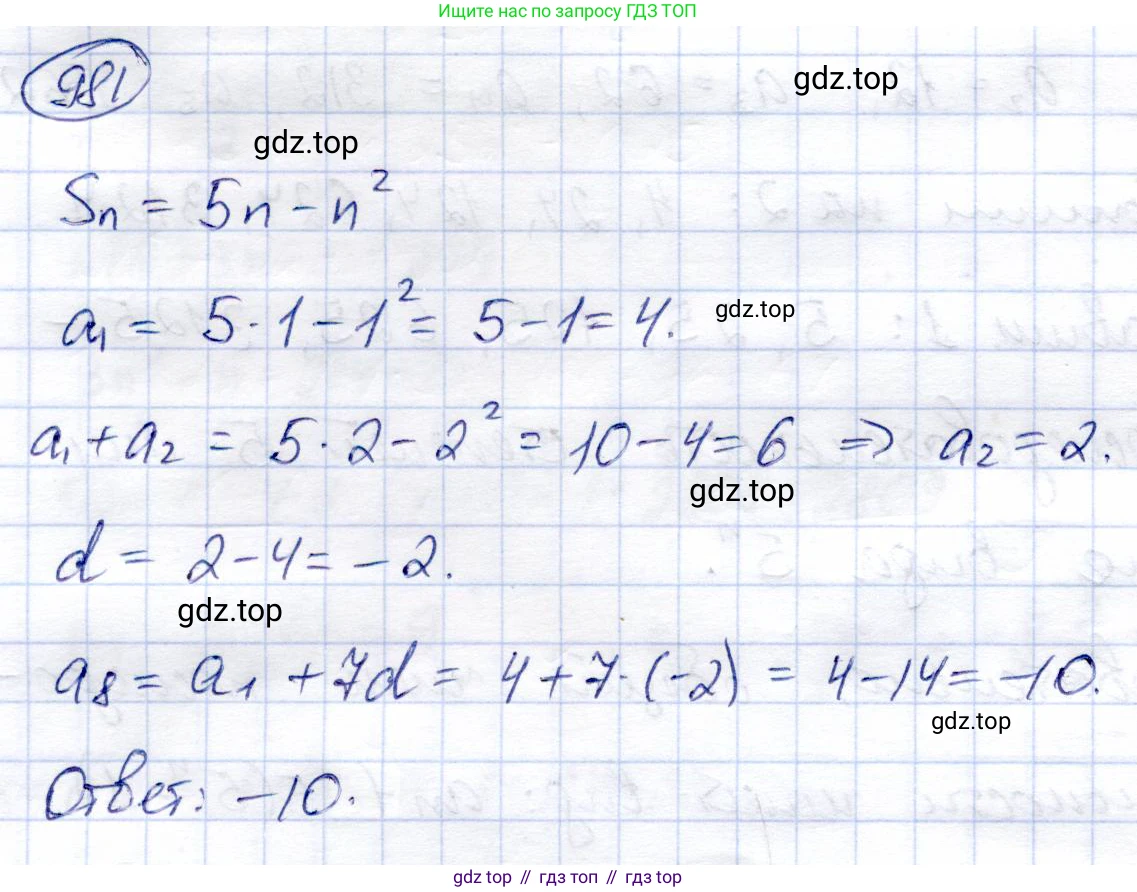 Ищите нас по запросу ГДЗ ТОП
981
gdz.top
gdz.top
Sn = 5n - n²
a₁ = 5·1 - 1² = 5 - 1 = 4.
gdz.top
a₁ + a₂ = 5·2 - 2² = 10 - 4 = 6 ⇒ a₂ = 2.
gdz.top
d = 2 - 4 = -2.
gdz.top
a₈ = a₁ + 7d = 4 + 7·(-2) = 4 - 14 = -10.
gdz.top
Ответ: -10.
gdz top // гдз топ // гдз top